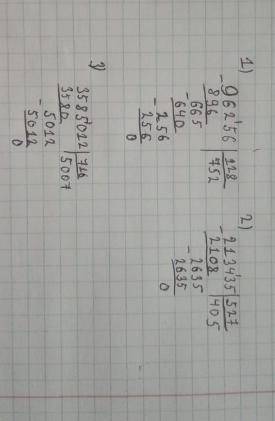 1)
-96256 |128
896 |752
-665
640
-256
256
0
2)
-213435 |527
2108 |405
-2635
2635
0
3)
3585012 |716
3580 |5007
-5012
5012
0